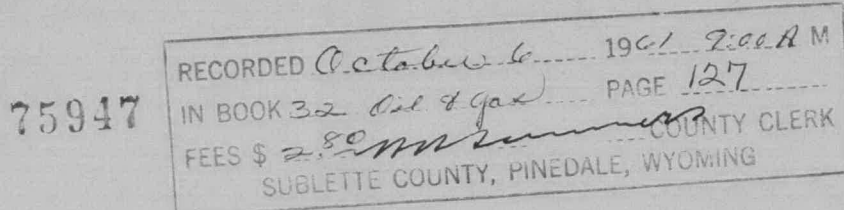 75947
RECORDED October 6 1961 9:00 A M
IN BOOK 32 Oil & Gas PAGE 127
FEES $ 2.80 COUNTY CLERK
SUBLETTE COUNTY, PINEDALE, WYOMING